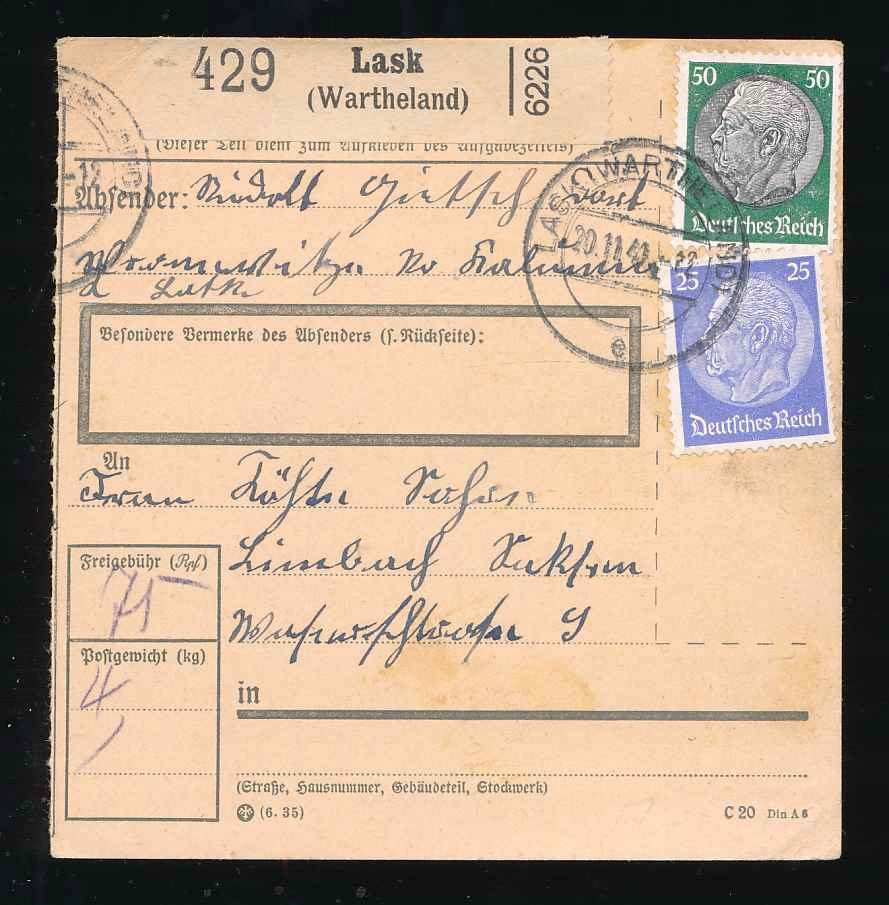 429 Lask 6226
(Wartheland)
50 50
Deutsches Reich
(Dieser Teil dient zum Aufkleben des Aufgabezettels)
LASK (WARTHELAND)
20.11.41 -12
Absender: Rudolf
25 25
Deutsches Reich
Lask
Besondere Vermerke des Absenders (s. Rückseite):
An
Frau Käthe
Freigebühr (Rpf)
Limbach Sachsen
75
Postgewicht (kg)
4
in
(Straße, Hausnummer, Gebäudeteil, Stockwerk)
(6. 35) C 20 Din A 6